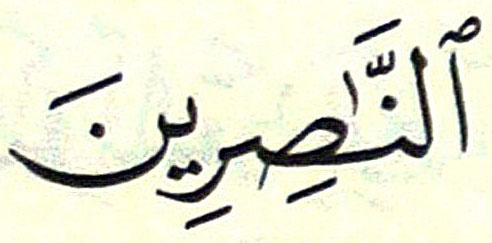 ٱلنَّٰصِرِينَ